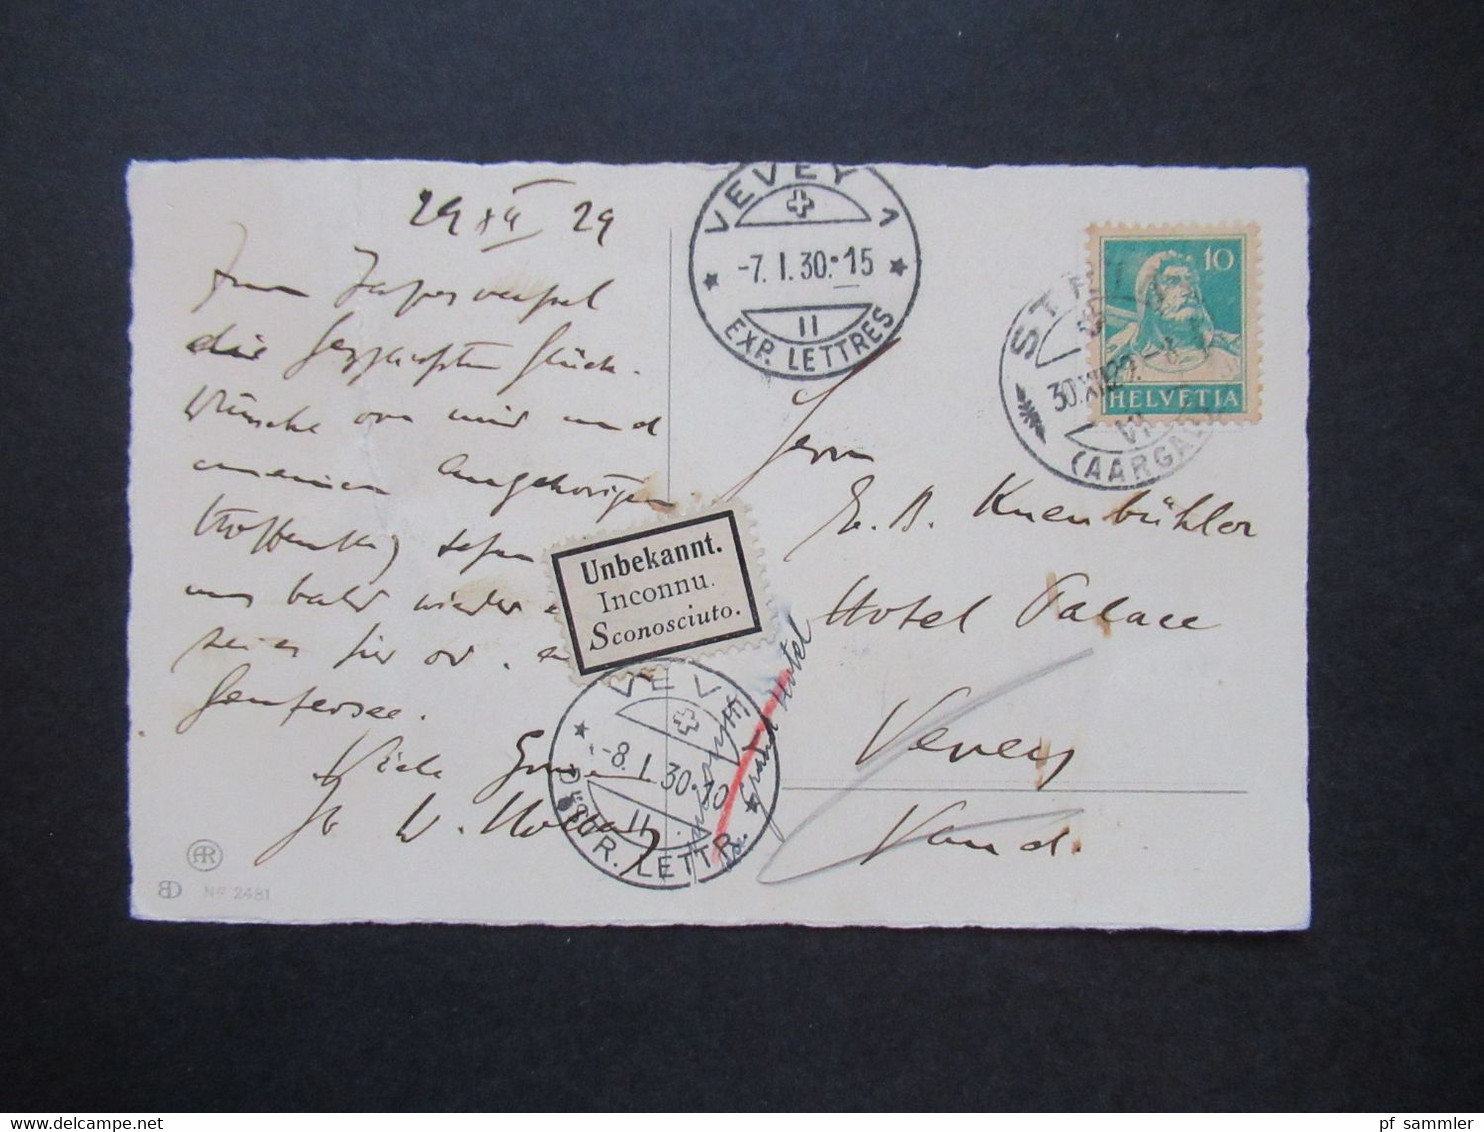 29 XII 29
Zum Jahreswechsel
die herzlichsten Glück-
wünsche von mir und
meinen Angehörigen
Hoffentlich sehen
uns bald wieder
sei es hier od. am
Genfersee.
Viele Grüsse
VEVEY 1
-7. I. 30.-15
II
EXP. LETTRES
10
HELVETIA
30.XII.29.-8
VI
(AARGAU)
Herrn
E. B. Knenbühler
Hotel Palace
Vevey
Vaud.
Unbekannt.
Inconnu.
Sconosciuto.
VEVEY
-8. I. 30.-10
II
DISTR. LETTR.
Grand Hotel
AR
BD
No 2481
www.delcampe.net
pf_sammler